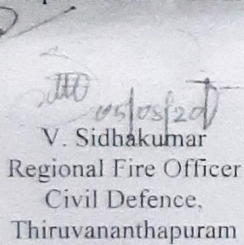 05/05/20
V. Sidhakumar
Regional Fire Officer
Civil Defence,
Thiruvananthapuram